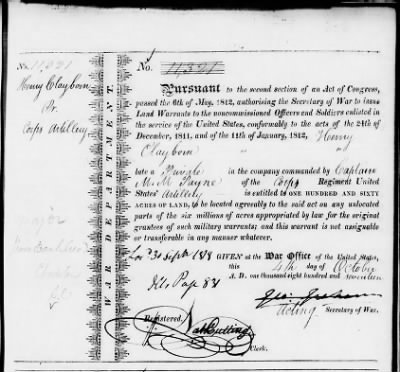 No. 11321
Henry Claybon
Pr.
Corps Artillery
WAR DEPARTMENT.
No. 11,321
Pursuant to the second section of an Act of Congress,
passed the 6th of May, 1812, authorising the Secretary of War to issue
Land Warrants to the noncommissioned Officers and Soldiers enlisted in
the service of the United States, conformably to the acts of the 24th of
December, 1811, and of the 11th of January, 1812, Henry
Claybon
late a Private in the company commanded by Captain
M. M. Payne of the Corps Regiment United
States' Artillery is entitled to ONE HUNDRED AND SIXTY
ACRES OF LAND, to be located agreeably to the said act on any unlocated
parts of the six millions of acres appropriated by law for the original
grantees of such military warrants; and this warrant is not assignable
or transferable in any manner whatever.
GIVEN at the War Office of the United States,
this 4th day of October
A. D. one thousand eight hundred and seventeen
Acting Secretary of War.
Registered,
Nath Cutting
Clerk.